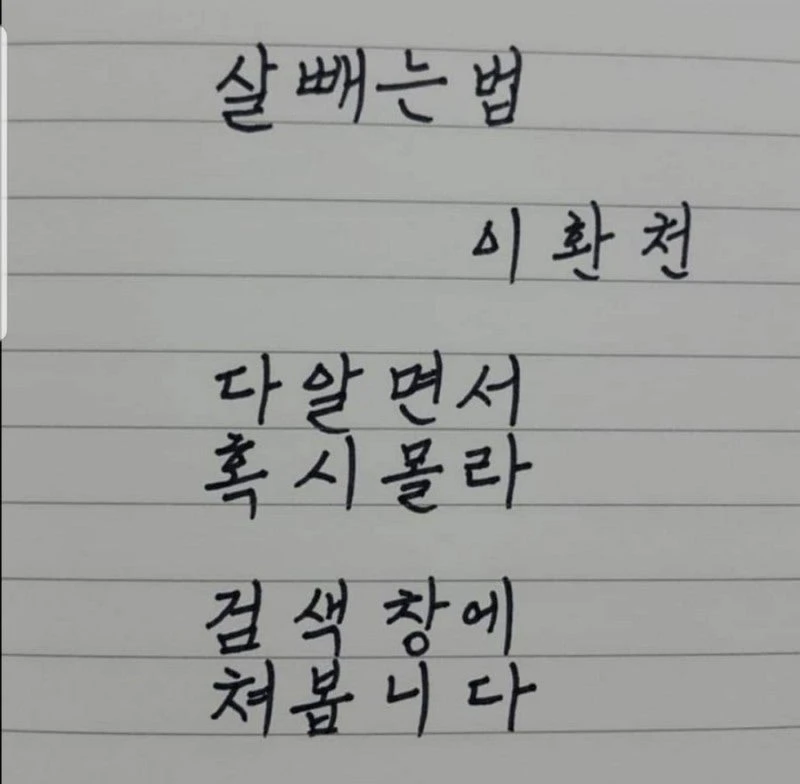 살 빼는 법
이환천
다 알면서
혹시 몰라
검색창에
쳐봅니다